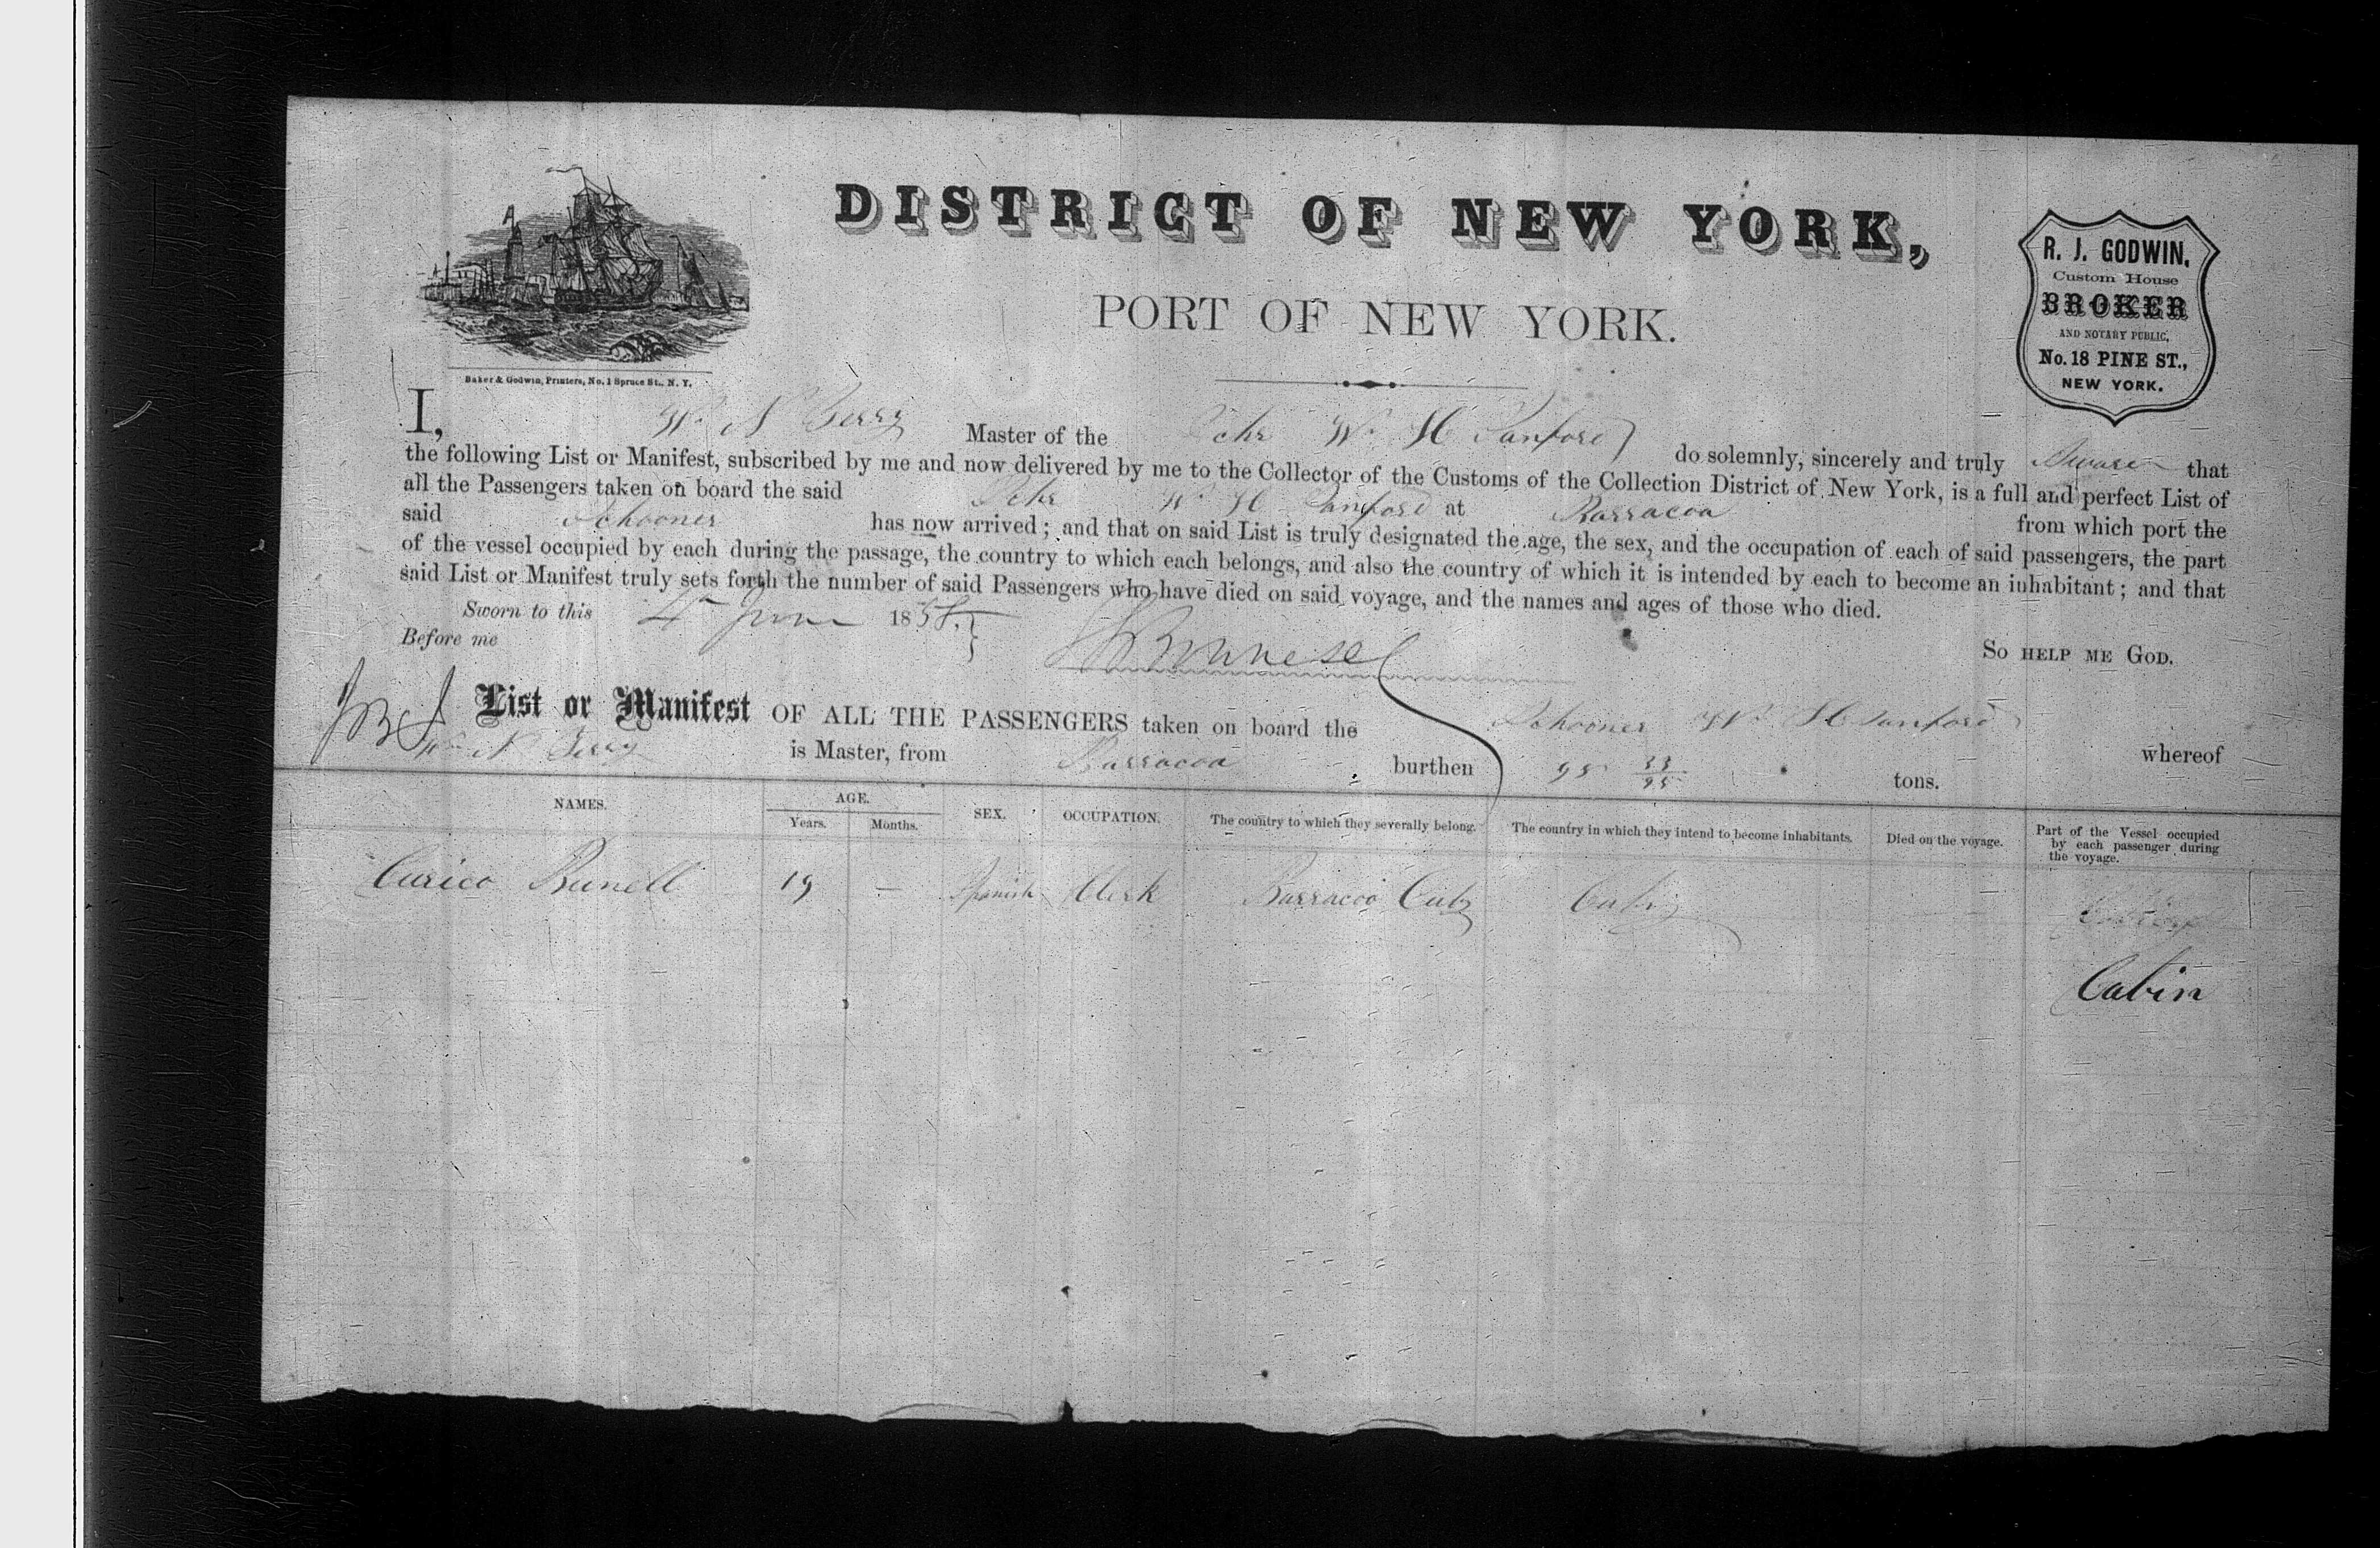 DISTRICT OF NEW YORK,
PORT OF NEW YORK.
R. J. GODWIN,
Custom House
BROKER
AND NOTARY PUBLIC,
No. 18 PINE ST.,
NEW YORK.
Baker & Godwin, Printers, No. 1 Spruce St., N. Y.
I, Wm N Berry Master of the Schr Wm H Sanford do solemnly, sincerely and truly Swear that
the following List or Manifest, subscribed by me and now delivered by me to the Collector of the Customs of the Collection District of New York, is a full and perfect List of
all the Passengers taken on board the said Schr Wm H Sanford at Barracoa from which port the
said Schooner has now arrived; and that on said List is truly designated the age, the sex, and the occupation of each of said passengers, the part
of the vessel occupied by each during the passage, the country to which each belongs, and also the country of which it is intended by each to become an inhabitant; and that
said List or Manifest truly sets forth the number of said Passengers who have died on said voyage, and the names and ages of those who died.
Sworn to this 4 June 1858.
Before me
So HELP ME GOD.
List or Manifest OF ALL THE PASSENGERS taken on board the Schooner Wm H Sanford whereof
Wm N Berry is Master, from Barracoa burthen 95 33/95 tons.
NAMES. AGE. SEX. OCCUPATION. The country to which they severally belong. The country in which they intend to become inhabitants. Died on the voyage. Part of the Vessel occupied by each passenger during the voyage.
Years. Months.
Curico Bunell 19 — Spanish Clerk Barracoo Cuba Cuba
Cabin